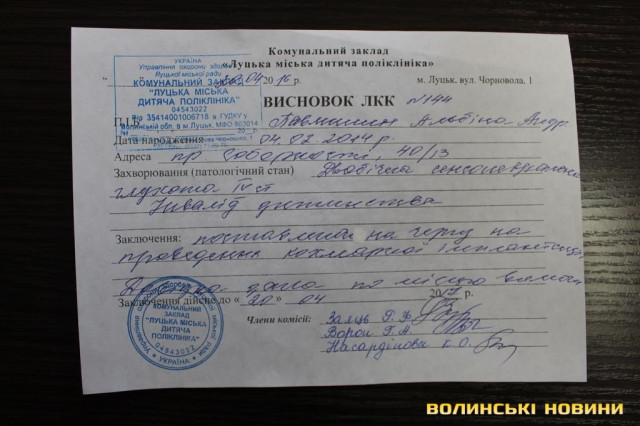 Комунальний заклад
«Луцька міська дитяча поліклініка»
УКРАЇНА
Управління охорони здоров'я
Луцької міської ради
КОМУНАЛЬНИЙ ЗАКЛАД
"ЛУЦЬКА МІСЬКА
ДИТЯЧА ПОЛІКЛІНІКА"
04543032
Р/р 35414001006718 в ГУДКУ у
Волинській обл. в м.Луцьк, МФО 803014
04 2016 р.
м. Луцьк, вул. Чорновола, 1
ВИСНОВОК ЛКК №144
П.І.Б. Альбіна Андр.
Дата народження 04.02.2014 р.
Адреса пр Соборності, 40/13
Захворювання (патологічний стан) Двобічна сенсоневральна
глухота IV ст
Інвалід дитинства
Заключення: поставлена на чергу на
проведення кохлеарної імплантації
дана по місцю вимоги
Заключення дійсне до « 20 » 04 20 р.
Члени комісії: Заяць Г. Ф.
Ворон Г. А.
К. О.
КОМУНАЛЬНИЙ
ЗАКЛАД
"ЛУЦЬКА МІСЬКА
ДИТЯЧА
ПОЛІКЛІНІКА"
04543032
УКРАЇНА
ВОЛИНСЬКІ НОВИНИ